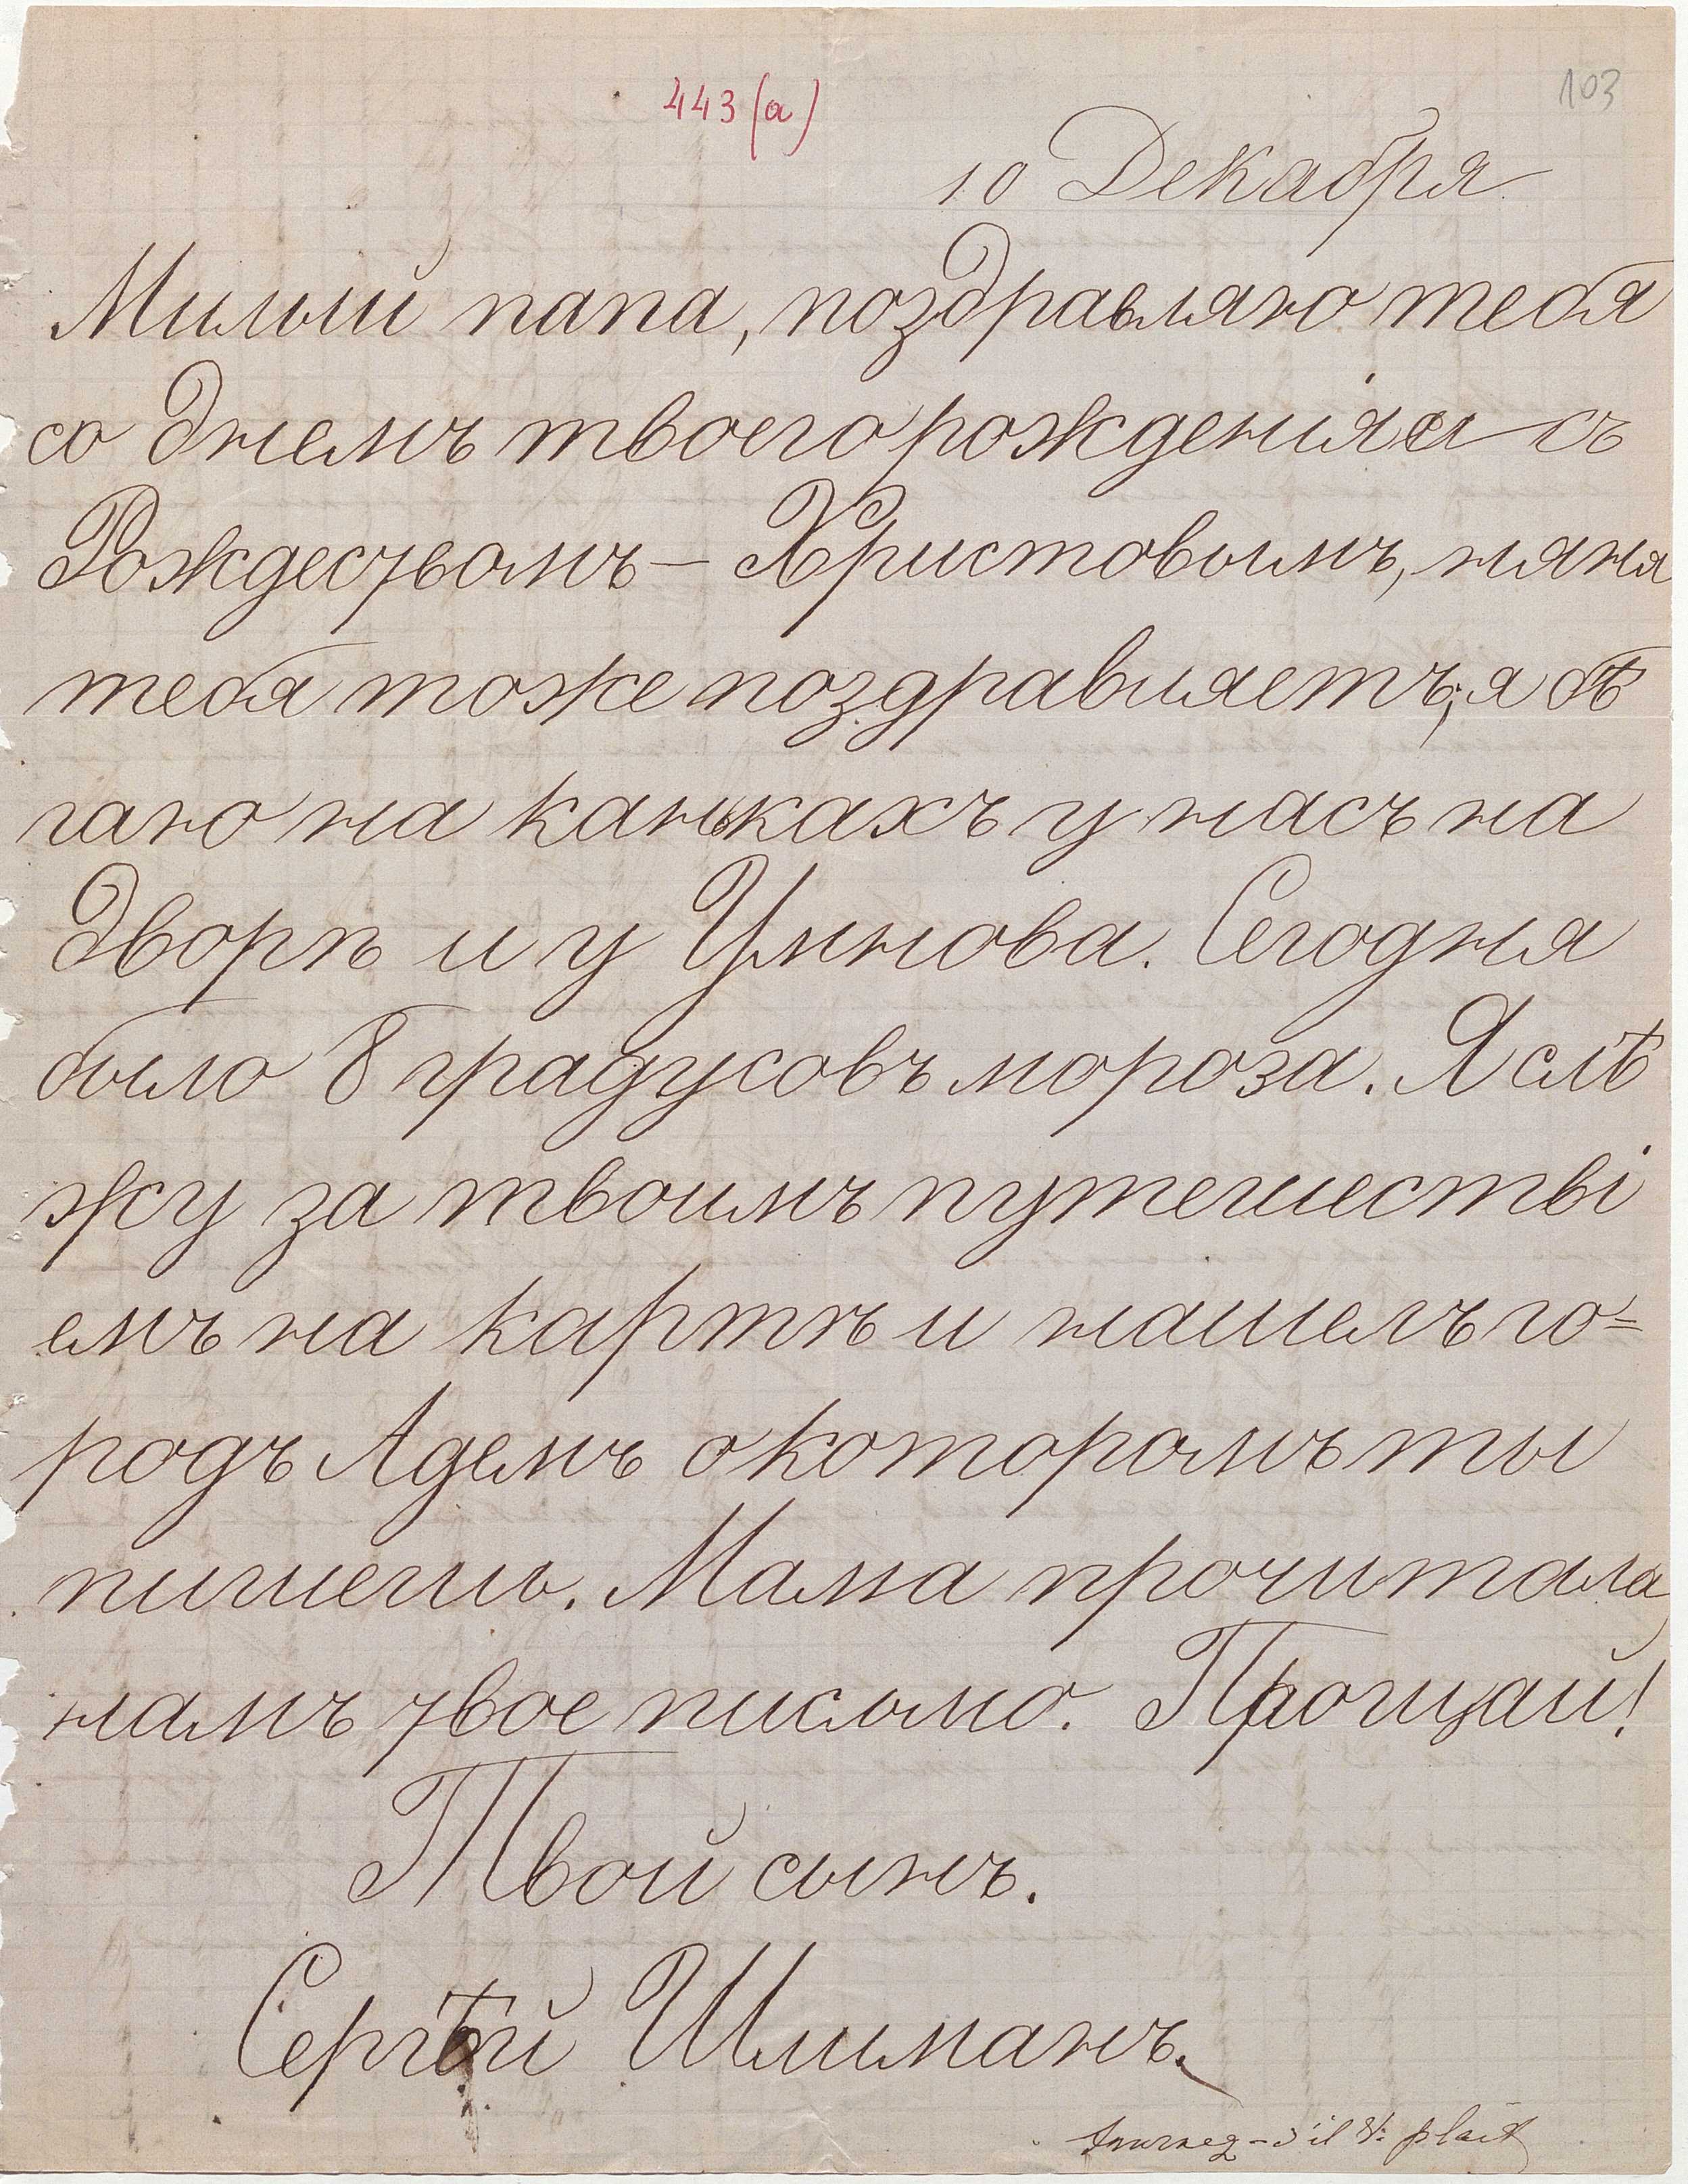 443 (a)
103
10 Декабря
Милый папа, поздравляю тебя
со днемъ твоего рожденія и съ
Рождествомъ – Христовымъ, няня
тебя тоже поздравляетъ, я бѣ
гаю на канькахъ у насъ на
дворѣ и у Умнова. Сегодня
было 8 градусовъ мороза. Я слѣ
жу за твоимъ путешестві
емъ на картѣ и нашелъ го=
родъ Адемъ о которомъ ты
пишешь. Мама прочитала
намъ твое письмо. Прощай!
Твой сынъ.
Сергѣй Шлиманъ.
tournez – s'il v: plait